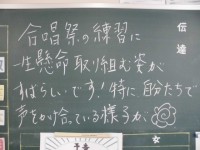 伝達
合唱祭の練習に
一生懸命取り組む姿が
すばらしいです!特に自分たちで
声をかけ合っている様子が